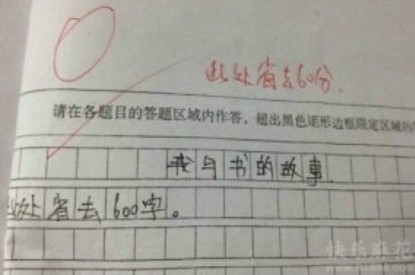 此处省去60分.
请在各题目的答题区域内作答,超出黑色矩形边框限定区域的
我与书的故事
此处省去600字。
快乐麻花